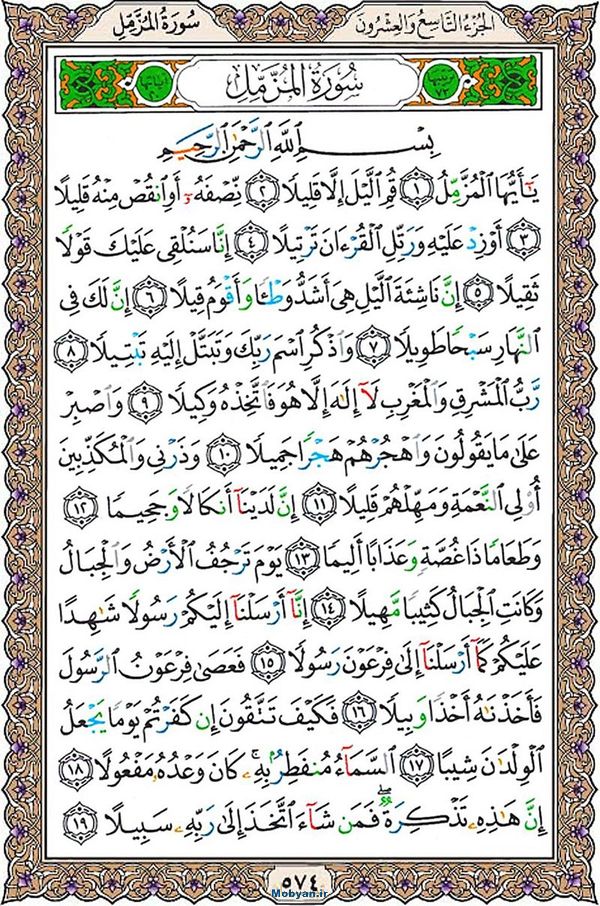 الجُزءُ التَّاسِعُ وَالعِشرُونَ
سُورَةُ المُزَّمِّلِ
سُورَةُ المُزَّمِّلِ
بِسْمِ اللَّهِ الرَّحْمَٰنِ الرَّحِيمِ
يَٰٓأَيُّهَا ٱلْمُزَّمِّلُ ١ قُمِ ٱلَّيْلَ إِلَّا قَلِيلًا ٢ نِّصْفَهُۥٓ أَوِ ٱنقُصْ مِنْهُ قَلِيلًا
٣ أَوْ زِدْ عَلَيْهِ وَرَتِّلِ ٱلْقُرْءَانَ تَرْتِيلًا ٤ إِنَّا سَنُلْقِى عَلَيْكَ قَوْلًا
ثَقِيلًا ٥ إِنَّ نَاشِئَةَ ٱلَّيْلِ هِىَ أَشَدُّ وَطْـًٔا وَأَقْوَمُ قِيلًا ٦ إِنَّ لَكَ فِى
ٱلنَّهَارِ سَبْحًا طَوِيلًا ٧ وَٱذْكُرِ ٱسْمَ رَبِّكَ وَتَبَتَّلْ إِلَيْهِ تَبْتِيلًا ٨
رَّبُّ ٱلْمَشْرِقِ وَٱلْمَغْرِبِ لَآ إِلَٰهَ إِلَّا هُوَ فَٱتَّخِذْهُ وَكِيلًا ٩ وَٱصْبِرْ
عَلَىٰ مَا يَقُولُونَ وَٱهْجُرْهُمْ هَجْرًا جَمِيلًا ١٠ وَذَرْنِى وَٱلْمُكَذِّبِينَ
أُو۟لِى ٱلنَّعْمَةِ وَمَهِّلْهُمْ قَلِيلًا ١١ إِنَّ لَدَيْنَآ أَنكَالًا وَجَحِيمًا ١٢
وَطَعَامًا ذَا غُصَّةٍ وَعَذَابًا أَلِيمًا ١٣ يَوْمَ تَرْجُفُ ٱلْأَرْضُ وَٱلْجِبَالُ
وَكَانَتِ ٱلْجِبَالُ كَثِيبًا مَّهِيلًا ١٤ إِنَّآ أَرْسَلْنَآ إِلَيْكُمْ رَسُولًا شَٰهِدًا
عَلَيْكُمْ كَمَآ أَرْسَلْنَآ إِلَىٰ فِرْعَوْنَ رَسُولًا ١٥ فَعَصَىٰ فِرْعَوْنُ ٱلرَّسُولَ
فَأَخَذْنَٰهُ أَخْذًا وَبِيلًا ١٦ فَكَيْفَ تَتَّقُونَ إِن كَفَرْتُمْ يَوْمًا يَجْعَلُ
ٱلْوِلْدَٰنَ شِيبًا ١٧ ٱلسَّمَآءُ مُنفَطِرٌۢ بِهِۦ ۚ كَانَ وَعْدُهُۥ مَفْعُولًا ١٨
إِنَّ هَٰذِهِۦ تَذْكِرَةٌ ۖ فَمَن شَآءَ ٱتَّخَذَ إِلَىٰ رَبِّهِۦ سَبِيلًا ١٩
٥٧٤
Mobyan.ir